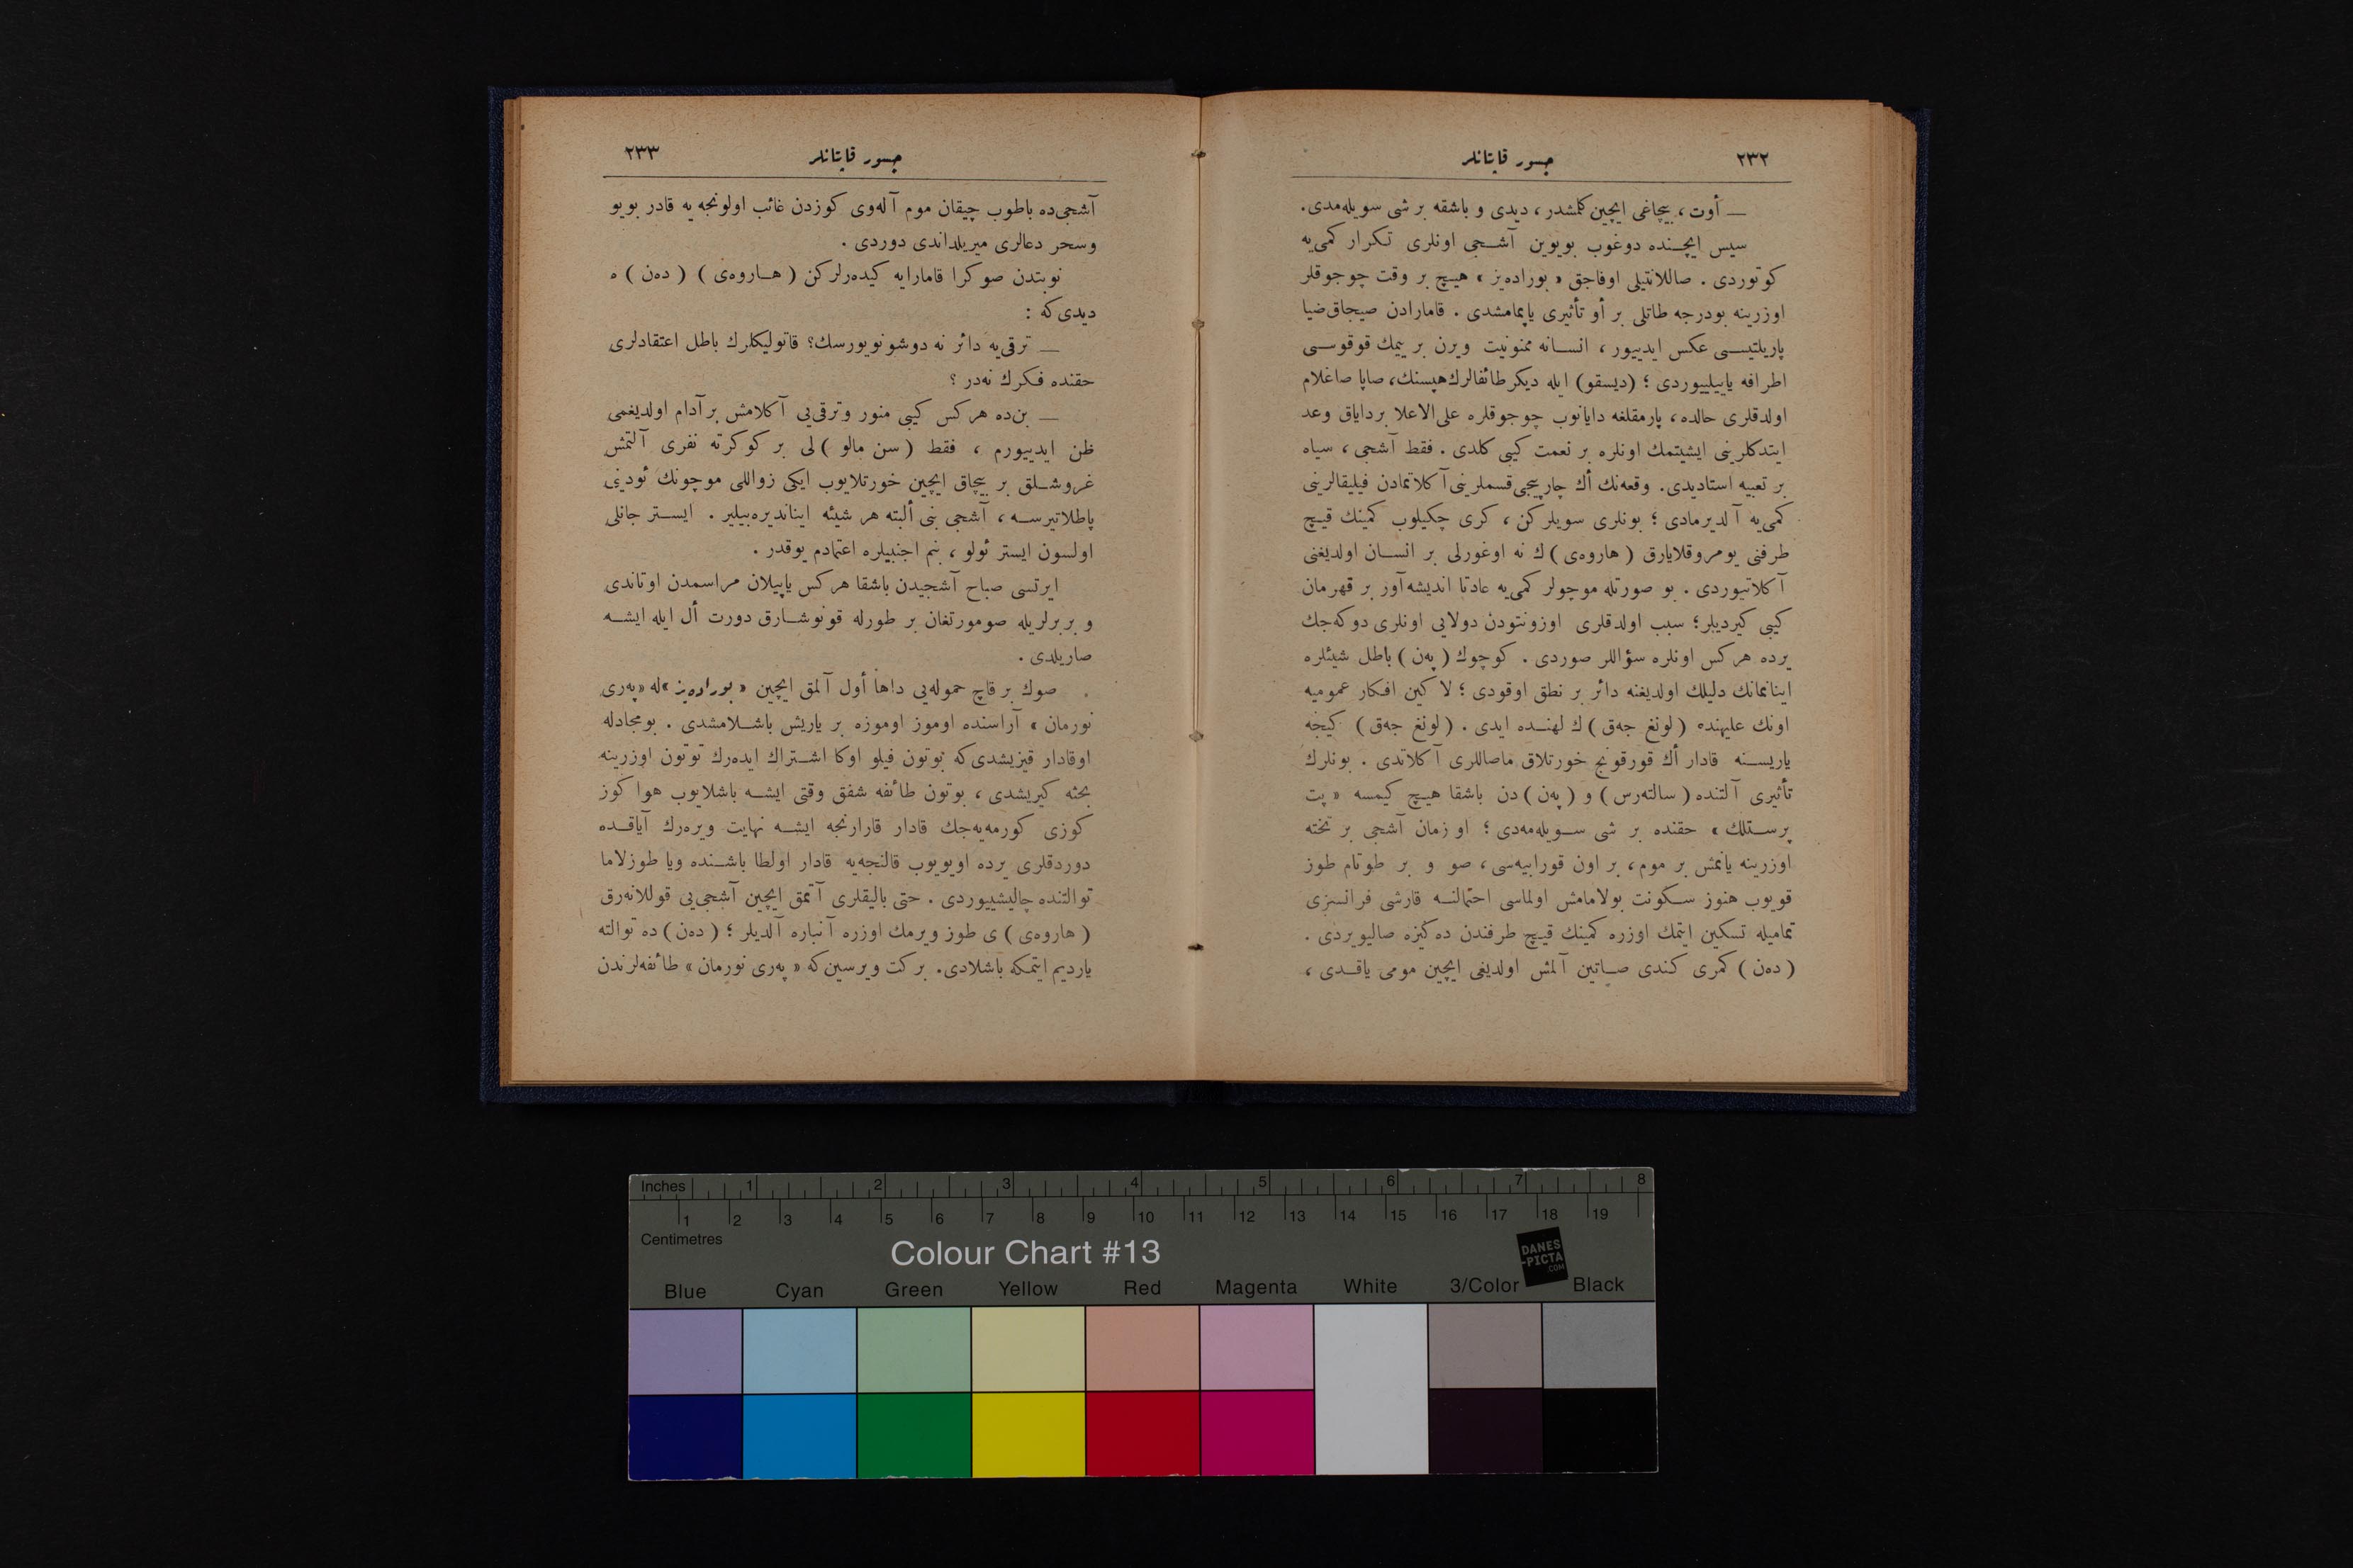 ٢٣٢
جسور قاپتانلر
— أوت، بیچاغی ایچین کلمشدر، دیدی و باشقه بر شی سویله‌مدی.
سیس ایچـنده دوغوب بویوین آشـجی اونلری تـکرار کمی‌یه
کوتوردی. صاللانتیلی اوفاجق «بوراده‌یز» هیـچ بر وقت چوجوقلر
اوزرینه بودرجه طاتلی بر أو تأثیری یاپمامشدی. قامارادن صیجاق ضیا
پاریلتیـسی عکس ایدییور، انسـانه ممنونیت ویرن بر ییمك قوقوسـی
اطرافه یاییلییوردی؛ (دیسقو) ایله دیکر طائفالرك هپسنك، صاپا صاغلام
اولدقلری حالده، پارمقلغه دایانوب چوجوقلره علی‌الاعلا بردایاق وعد
ایتدکلرینی ایشیتمك اونلره بر نعمت کیبی کلدی. فقط آشجی، سیاه
بر تعبیه استادیدی. وقعه‌نك أك چارپیجی قسملرینی آکلاتمادن فیلیقالرینی
کمی‌یه آلدیرمادی؛ بونلری سویلرکن، کری چکیلوب کمینك قیـچ
طرفنی یومروقلایارق (هاروه‌ی)ك نه اوغورلی بر انسـان اولدیغنی
آکلاتیوردی. بو صورتله موچولر کمی‌یه عادتا اندیشه‌آور بر قهرمان
کیبی کیردیلر؛ سبب اولدقلری اوزونتودن دولایی اونلری دوکه‌جك
یرده هرکس اونلره سؤاللر صوردی. کوچوك (په‌ن) باطل شیئلره
اینانمانك دلیلك اولدیغنه دائر بر نطق اوقودی؛ لاکین افکار عمومیه
اونك علیهنده (لونغ جه‌ق)ك لهنـده ایدی. (لونغ جه‌ق) کیجه
یاریسـنه قادار أك قورقونج خورتلاق ماصاللری آکلاتدی. بونلرك
تأثیری آلتنده (سالته‌رس) و (په‌ن)دن باشقا هیـچ کیمسه «پت
پرسـتلك» حقنده بر شی سـویله‌مه‌دی؛ او زمان آشجی بر تخته
اوزرینه یانمش بر موم، بر اون قورابیه‌سی، صو و بر طوتام طوز
قویوب هنوز سـکونت بولامامش اولماسی احتمالنـه قارشی فرانسزی
تمامیله تسکین ایتمك اوزره کمینك قیـچ طرفندن ده‌کیزه صالیویردی.
(ده‌ن) کمری کندی صـاتین آلمش اولدیغی ایچین مومی یاقـدی،
جسور قاپتانلر
٢٣٣
آشجی‌ده باطوب چیقان موم آله‌وی کوزدن غائب اولونجه‌یه قادر بویو
وسحر دعالری میریلداندی دوردی.
نوبتدن صوکرا قامارایه کیده‌رلرکن (هـاروه‌ی) (ده‌ن)ه
دیدی‌که:
— ترقی‌یه دائر نه دوشونویورسك؟ قاتولیکلرك باطل اعتقادلری
حقنده فـکرك نه‌در؟
— بن‌ده هرکس کیبی منور وترقی‌یی آکلامش برآدام اولدیغمی
ظن ایدییورم، فقط (سن مالو)لی بر کوکرته نفری آلتمش
غروشـلق بر بیچاق ایچین خورتلایوب ایکی زواللی موچونك ئودینی
پاطلاتیرسـه، آشجی بنی ألبته هر شیئه ایناندیره‌بیلیر. ایسـتر جانلی
اولسون ایستر ئولو، بنم اجنبیلره اعتمادم یوقدر.
ایرتسی صباح آشجیدن باشقا هرکس یاپیلان مراسمدن اوتاندی
و بربرلریله صومورتغان بر طورله قونوشـارق دورت أل ایله ایشـه
صاریلدی.
صوك بر قاچ حموله‌یی داها أول آلمق ایچین «بوراده‌یز»له «په‌ری
نورمان» آراسنده اوموز اوموزه بر یاریش باشـلامشدی. بومجادله
اوقادار قیزیشدی‌که بوتون فیلو اوکا اشـتراك ایده‌رك توتون اوزرینه
بحثه کیریشدی، بوتون طائفه شفق وقتی ایشـه باشلایوب هوا کوز
کوزی کورمه‌یه‌جك قادار قارارنجه ایشـه نهایت ویره‌رك آیاقـده
دوردقلری یرده اویویوب قالنجه‌یه قادار اولطا باشـنده ویا طوزلاما
توالتنده چالیشییوردی. حتی بالیقلری آتمق ایچین آشجی‌یی قوللانه‌رق
(هاروه‌ی)ی طوز ویرمك اوزره آنباره آلدیلر؛ (ده‌ن)ده توالته
یاردیم ایتمکه باشلادی. برکت ویرسین‌که «په‌ری نورمان» طائفه‌لرندن
Inches 1 2 3 4 5 6 7 8
1 2 3 4 5 6 7 8 9 10 11 12 13 14 15 16 17 18 19
Centimetres
Colour Chart #13
DANES
-PICTA
.COM
Blue Cyan Green Yellow Red Magenta White 3/Color Black